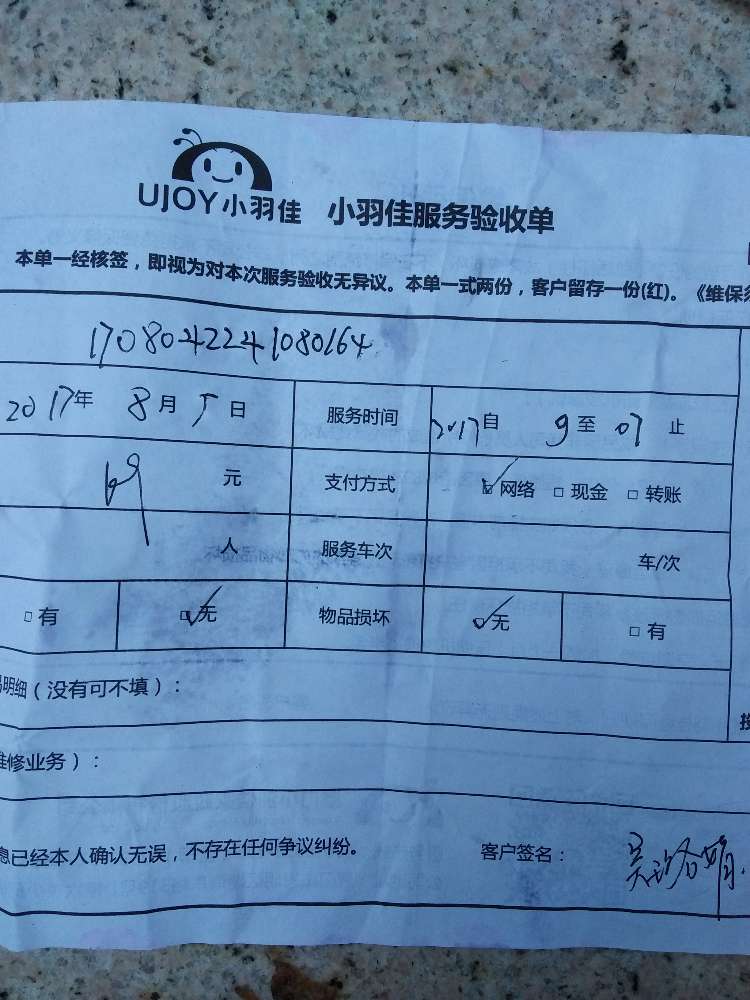 UJOY小羽佳 小羽佳服务验收单
本单一经核签，即视为对本次服务验收无异议。本单一式两份，客户留存一份(红)。《维保须
1708042241080164
2017年 8月5日 服务时间 2017自 9至 07止
69 元 支付方式 ☑网络 □现金 □转账
人 服务车次 车/次
□有 ☑无 物品损坏 ☑无 □有
明细（没有可不填）：
维修业务）：
息已经本人确认无误，不存在任何争议纠纷。 客户签名：吴